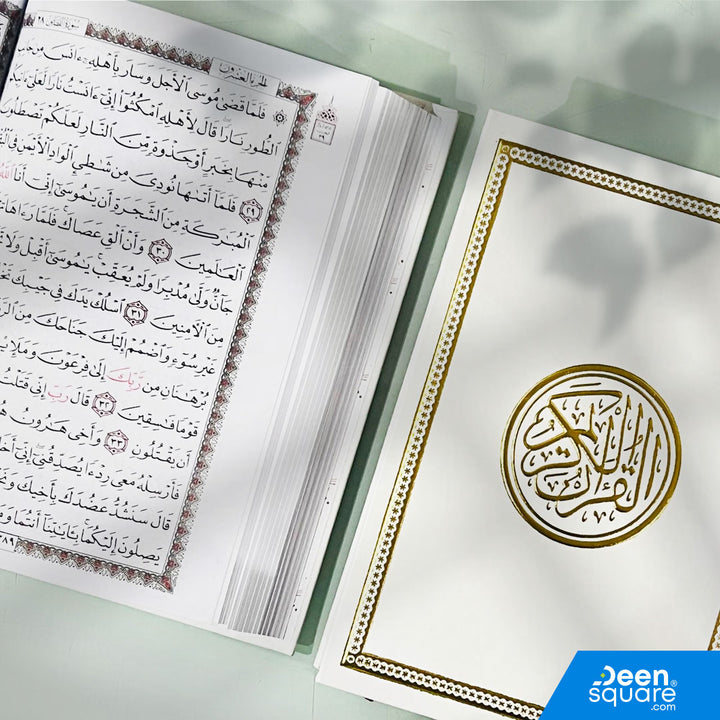 سُورَةُ القَصَصِ ٢٨
الجُزْءُ العِشْرُونَ
۞ فَلَمَّا قَضَىٰ مُوسَى ٱلْأَجَلَ وَسَارَ بِأَهْلِهِۦٓ ءَانَسَ مِن
ٱلطُّورِ نَارًا قَالَ لِأَهْلِهِ ٱمْكُثُوٓا۟ إِنِّىٓ ءَانَسْتُ نَارًا لَّعَلِّىٓ
مِّنْهَا بِخَبَرٍ أَوْ جَذْوَةٍ مِّنَ ٱلنَّارِ لَعَلَّكُمْ
٢٩ فَلَمَّآ أَتَىٰهَا نُودِىَ مِن شَٰطِئِ ٱلْوَادِ ٱلْأَيْمَنِ فِى
ٱلْمُبَٰرَكَةِ مِنَ ٱلشَّجَرَةِ أَن يَٰمُوسَىٰٓ إِنِّىٓ أَنَا ٱللَّهُ
ٱلْعَٰلَمِينَ ٣٠ وَأَنْ أَلْقِ عَصَاكَ فَلَمَّا رَءَاهَا
جَآنٌّ وَلَّىٰ مُدْبِرًا وَلَمْ يُعَقِّبْ يَٰمُوسَىٰٓ أَقْبِلْ وَلَا
مِنَ ٱلْءَامِنِينَ ٣١ ٱسْلُكْ يَدَكَ فِى جَيْبِكَ
غَيْرِ سُوٓءٍ وَٱضْمُمْ إِلَيْكَ جَنَاحَكَ مِنَ
بُرْهَٰنَانِ مِن رَّبِّكَ إِلَىٰ فِرْعَوْنَ
قَوْمًا فَٰسِقِينَ ٣٢ قَالَ رَبِّ إِنِّى قَتَلْتُ
أَن يَقْتُلُونِ ٣٣ وَأَخِى هَٰرُونُ
فَأَرْسِلْهُ مَعِىَ رِدْءًا يُصَدِّقُنِىٓ إِنِّىٓ
قَالَ سَنَشُدُّ عَضُدَكَ بِأَخِيكَ
يَصِلُونَ إِلَيْكُمَا بِـَٔايَٰتِنَآ أَنتُمَا
٣٨٩
القرآن الكريم
Deen
square®
.com